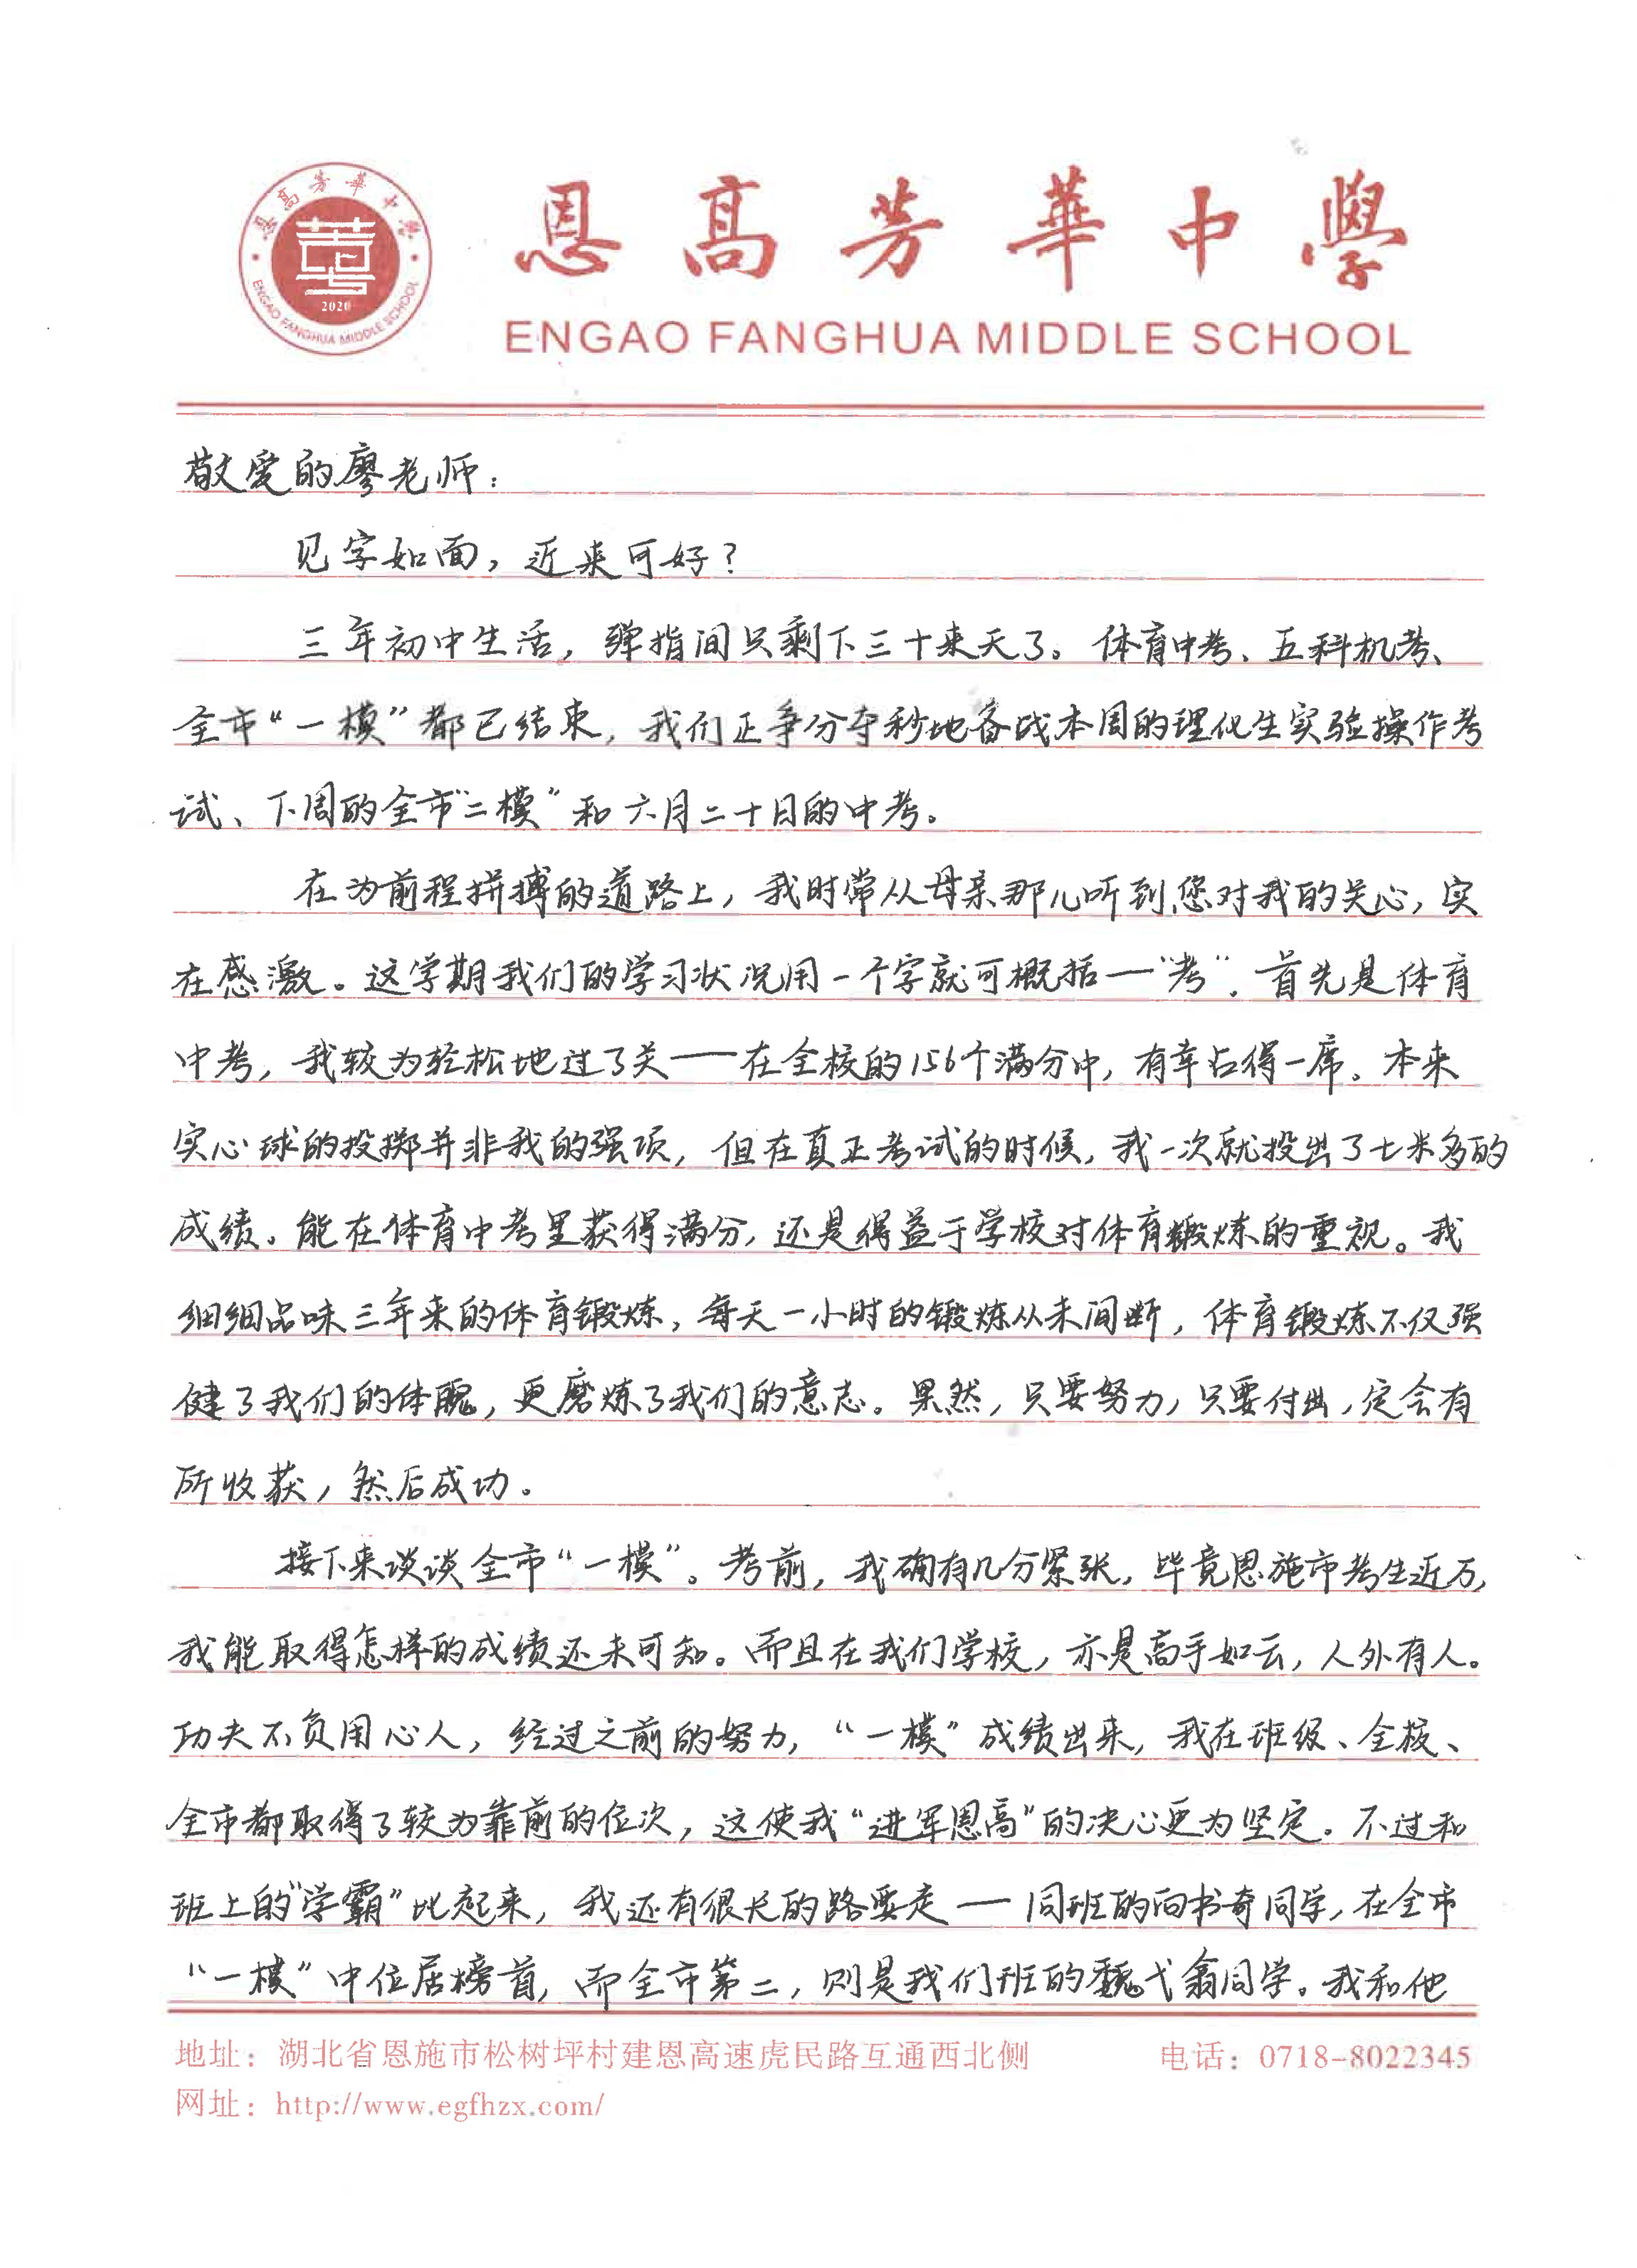 恩高芳華中學
ENGAO FANGHUA MIDDLE SCHOOL
2020
恩高芳華中學
ENGAO FANGHUA MIDDLE SCHOOL
敬爱的廖老师：
见字如面，近来可好？
三年初中生活，弹指间只剩下三十来天了。体育中考、五科机考、
全市“一模”都已结束，我们正争分夺秒地备战本周的理化生实验操作考
试、下周的全市“二模”和六月二十日的中考。
在为前程拼搏的道路上，我时常从母亲那儿听到您对我的关心，实
在感激。这学期我们的学习状况用一个字就可概括一“考”。首先是体育
中考，我较为轻松地过了关——在全校的156个满分中，有幸占得一席。本来
实心球的投掷并非我的强项，但在真正考试的时候，我一次就投出了七米多的
成绩。能在体育中考里获得满分，还是得益于学校对体育锻炼的重视。我
细细品味三年来的体育锻炼，每天一小时的锻炼从未间断，体育锻炼不仅强
健了我们的体魄，更磨炼了我们的意志。果然，只要努力，只要付出，定会有
所收获，然后成功。
接下来谈谈全市“一模”。考前，我确有几分紧张，毕竟恩施市考生近万，
我能取得怎样的成绩还未可知。而且在我们学校，亦是高手如云，人外有人。
功夫不负用心人，经过之前的努力，“一模”成绩出来，我在班级、全校、
全市都取得了较为靠前的位次，这使我“进军恩高”的决心更为坚定。不过和
班上的“学霸”比起来，我还有很长的路要走——同班的向书奇同学，在全市
“一模”中位居榜首，而全市第二，则是我们班的魏弋翕同学。我和他
地址：湖北省恩施市松树坪村建恩高速虎民路互通西北侧
电话：0718-8022345
网址：http://www.egfhzx.com/